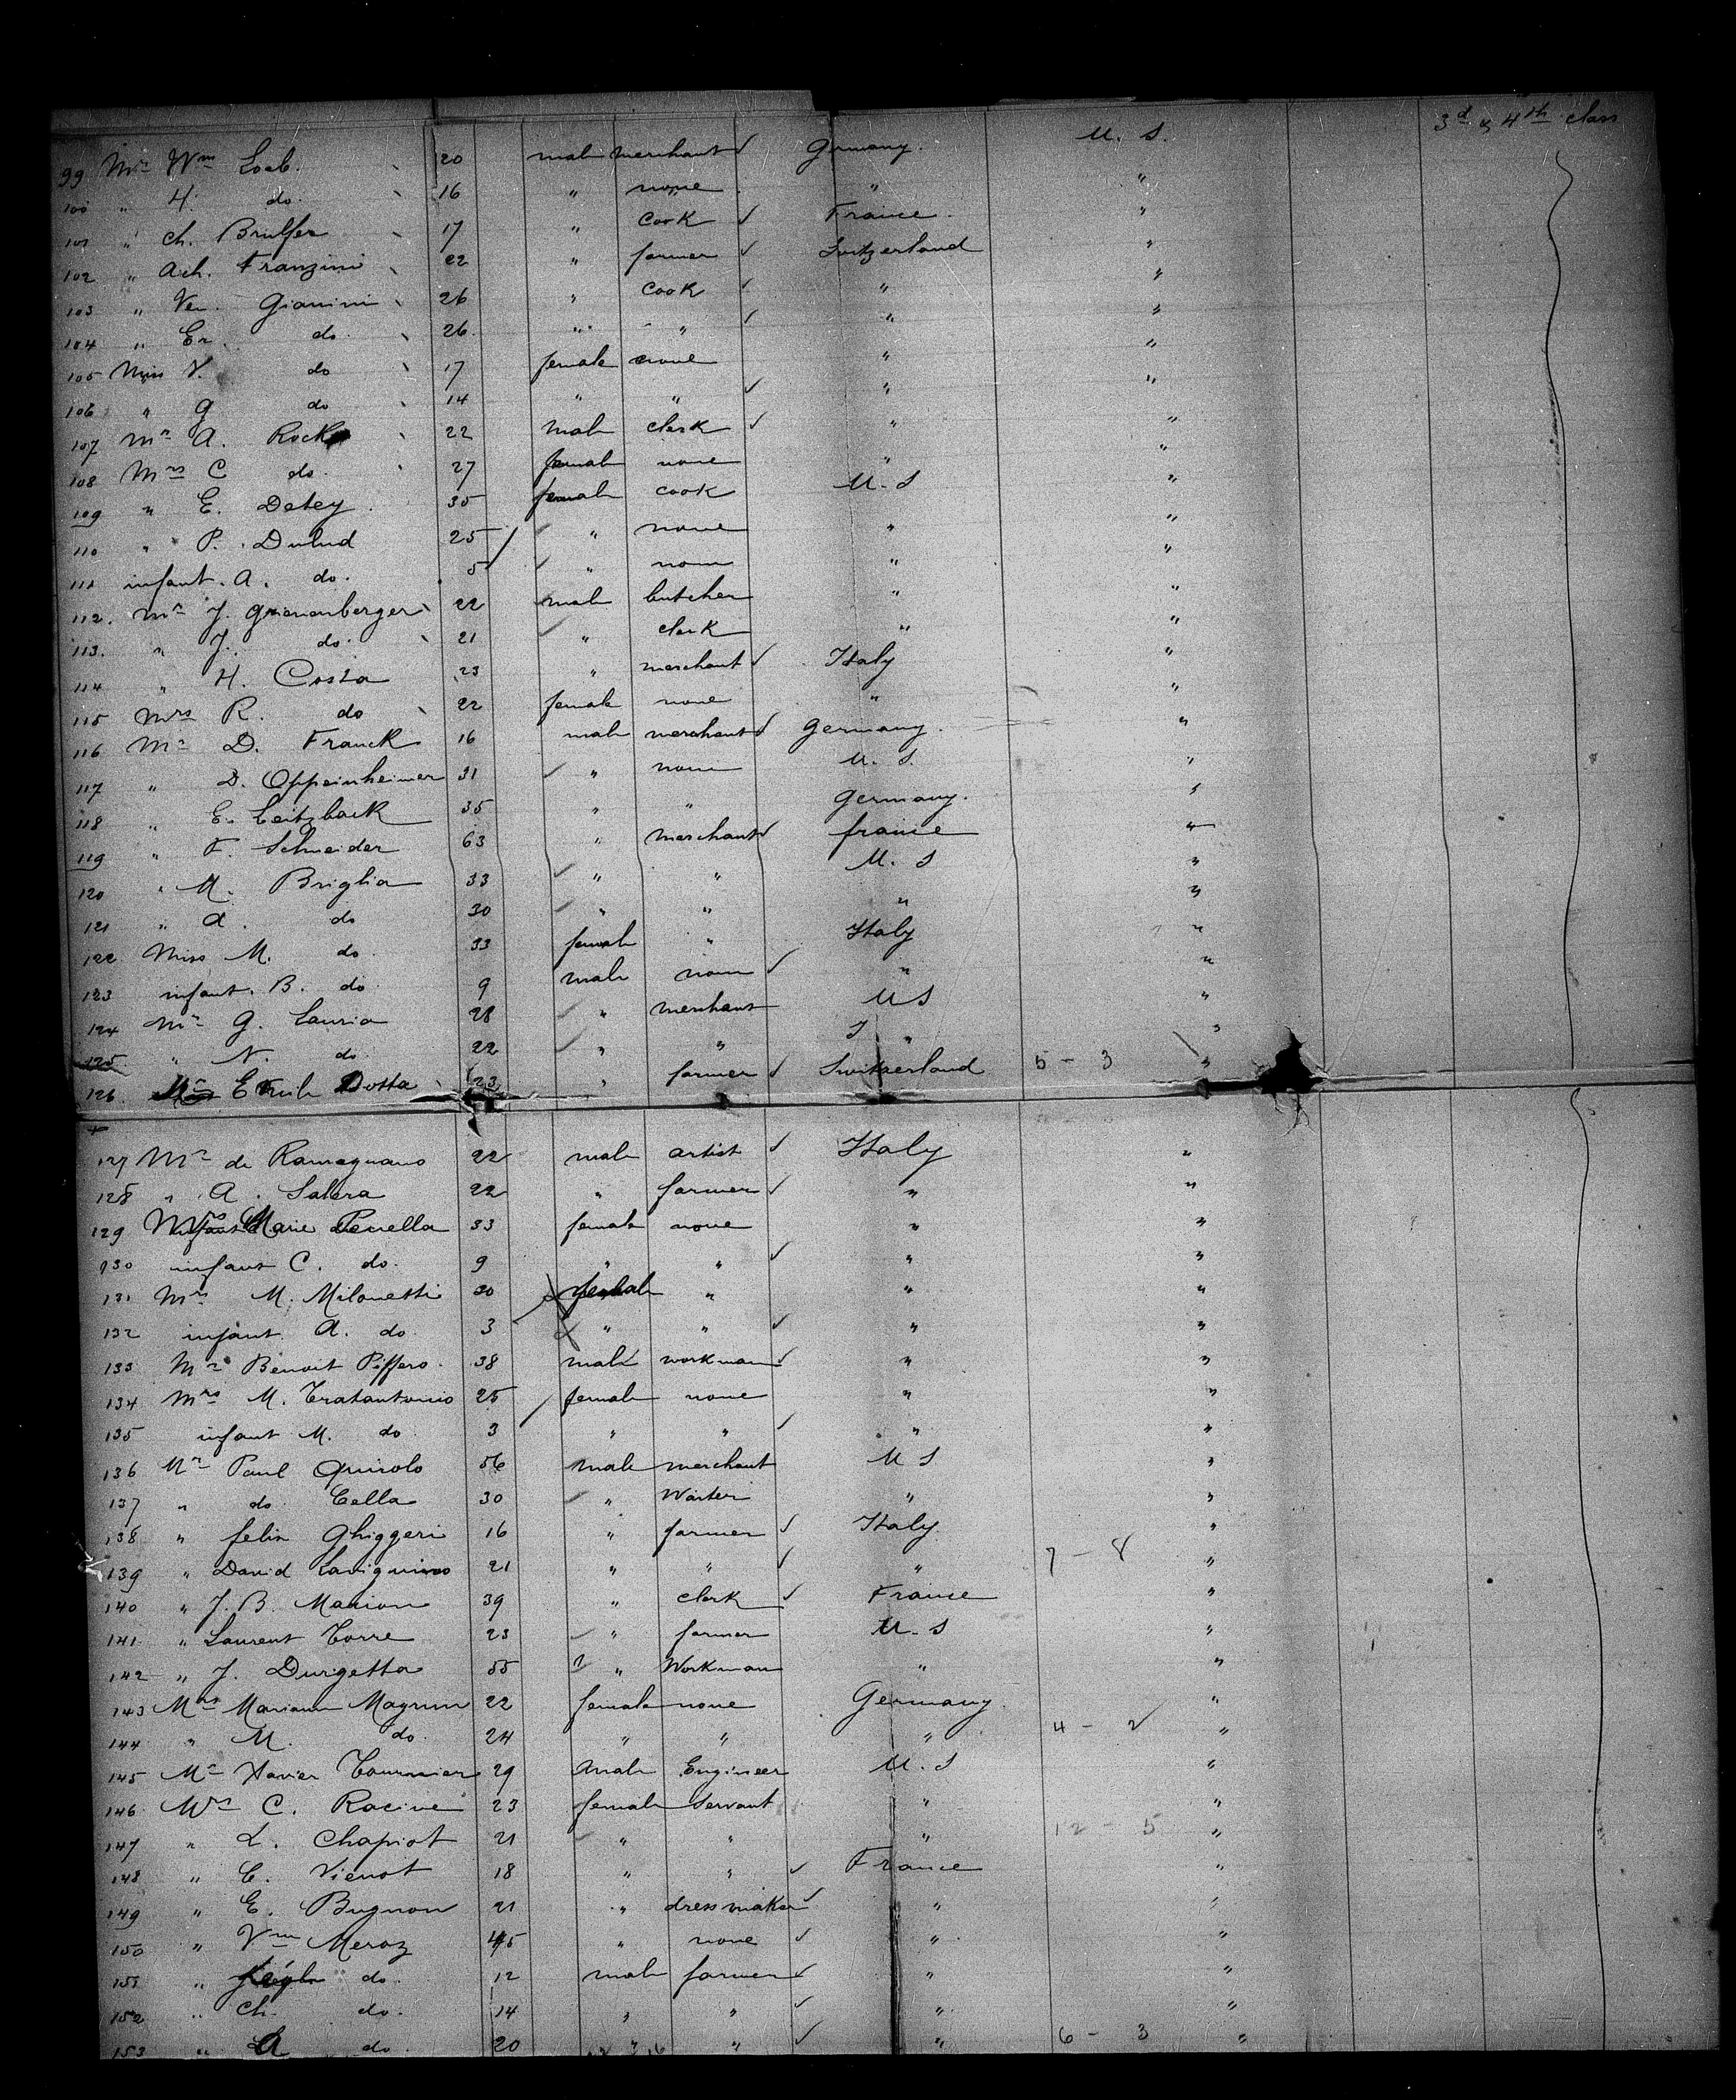 U. S. 3d & 4th class
99 Mr Wm Loeb. 20 male merchant ✓ Germany.
100 " H. do. 16 " none " "
101 " Ch. Brulfer 17 " cook ✓ France. "
102 " Ach. Franzini 22 " farmer ✓ Switzerland "
103 " Ven. Gianini 26 " cook ✓ " "
104 " Er. do. 26. " " ✓ " "
105 Miss V. do 17 female none " "
106 " G do 14 " " ✓ " "
107 Mr A. Rock 22 male clerk ✓ " "
108 Mrs C do. 27 female none " "
109 " E. Detey. 35 female cook U. S "
110 " P. Dulud 25 ✓ " none " "
111 infant. A. do. 5 ✓ " none " "
112. Mr J. Grenenberger 22 male butcher " "
113. " J. do. 21 ✓ " clerk " "
114 " H. Costa 23 " merchant ✓ Italy "
115 Mrs R. do 22 female none " "
116 Mr D. Franck 16 male merchant ✓ Germany. "
117 " D. Oppeinheimer 31 ✓ " none U. S. "
118 " E. Leitzback 35 " " Germany. "
119 " F. Schneider 63 " merchant ✓ france "
120 " M. Briglia 33 ✓ " " U. S "
121 " A. do 30 ✓ " " " "
122 Miss M. do. 33 female " Italy "
123 infant. B. do. 9 male none ✓ " "
124 Mr G. Lauria 28 ✓ " merchant U S "
125 " N. do. 22 ✓ " " " "
126. Mr Emile Dotta 23 " farmer ✓ Switzerland 5 - 3 "
127 Mr de Ramagnano 22 male artist ✓ Italy "
128 " A. Salera 22 " farmer ✓ " "
129 Mrs Marie Penella 33 female none " "
130 infant C. do. 9 " " ✓ " "
131 Mrs M. Milonetti 30 female " " "
132 infant. A. do. 3 " " ✓ " "
133 Mr Benoit Piffero. 38 male workman ✓ " "
134 Mrs M. Tratantonio 25 female none " "
135 infant M. do. 3 " " ✓ " "
136 Mr Paul Quirolo 56 male merchant U S "
137 " do. Cella 30 ✓ " Waiter " "
138 " felix Ghiggeri 16 " farmer ✓ Italy "
139 " David 21 " " ✓ " 7 - 8 "
140 " J. B. Marion 39 " clerk ✓ France "
141. " Laurent Torre 23 ✓ " farmer U. S "
142 " J. Durgetta 55 " Workman " "
143 Mrs Mariann Magrun 22 female none Germany. "
144 " M. do. 24 " " " 4 - 2 "
145 Mr Xavier Tournier 29 male Engineer U. S "
146. Mrs C. Racine 23 female servant " "
147 " L. Chapiot 21 ✓ " " " 12 - 5 "
148 " C. Vienot 18 " " ✓ France "
149 " E. Bugnon 21 " dressmaker ✓ " "
150 " Vm Meroz 45 " none ✓ " "
151 " do. 12 male farmer ✓ " "
152 " Ch. do. 14 " " ✓ " "
153 " A do. 20 " " ✓ " 6 - 3 "